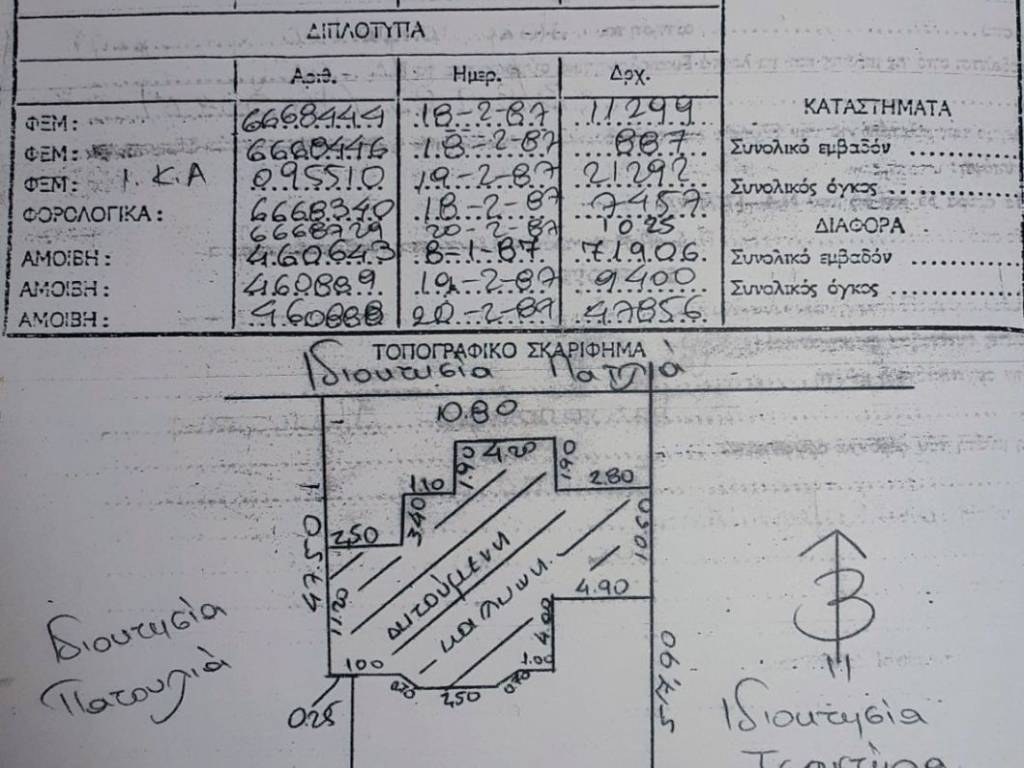 ΔΙΠΛΟΤΥΠΑ
Αριθ. Ημερ. Δρχ.
ΦΕΜ: 6668444 18-2-87 11299
ΦΕΜ: 6668446 18-2-87 887
ΦΕΜ: Ι.Κ.Α 095510 19-2-87 21292
ΦΟΡΟΛΟΓΙΚΑ: 6668340 18-2-87 7457
6668729 20-2-87 1025
ΑΜΟΙΒΗ: 460643 8-1-87 71906
ΑΜΟΙΒΗ: 460889 19-2-87 9400
ΑΜΟΙΒΗ: 460888 20-2-87 47856
ΚΑΤΑΣΤΗΜΑΤΑ
Συνολικό εμβαδόν
Συνολικός όγκος
ΔΙΑΦΟΡΑ
Συνολικό εμβαδόν
Συνολικός όγκος
ΤΟΠΟΓΡΑΦΙΚΟ ΣΚΑΡΙΦΗΜΑ
Ιδιοκτησία Πατουλιά
10.80
1.90 4.20 1.90
1.10 2.80
3.40
2,50
47.50
10.60
αιτούμενη
κάλυψη
11.20
4.90
4.00
1.00 1.00
0.70 2,50 0.70
0.25
57.90
Ιδιοκτησία
Πατουλιά
Β
Ιδιοκτησία